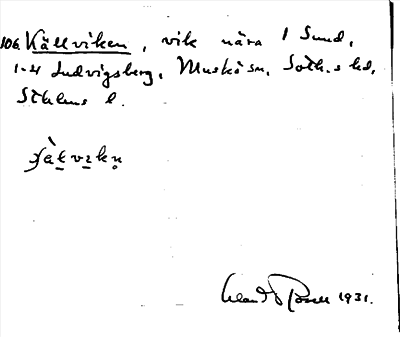 106 Källviken, vik nära 1 Sund,
1-4 Ludvigsberg, Muskö sn, Soth.s hd,
Sthlms l.
1931.